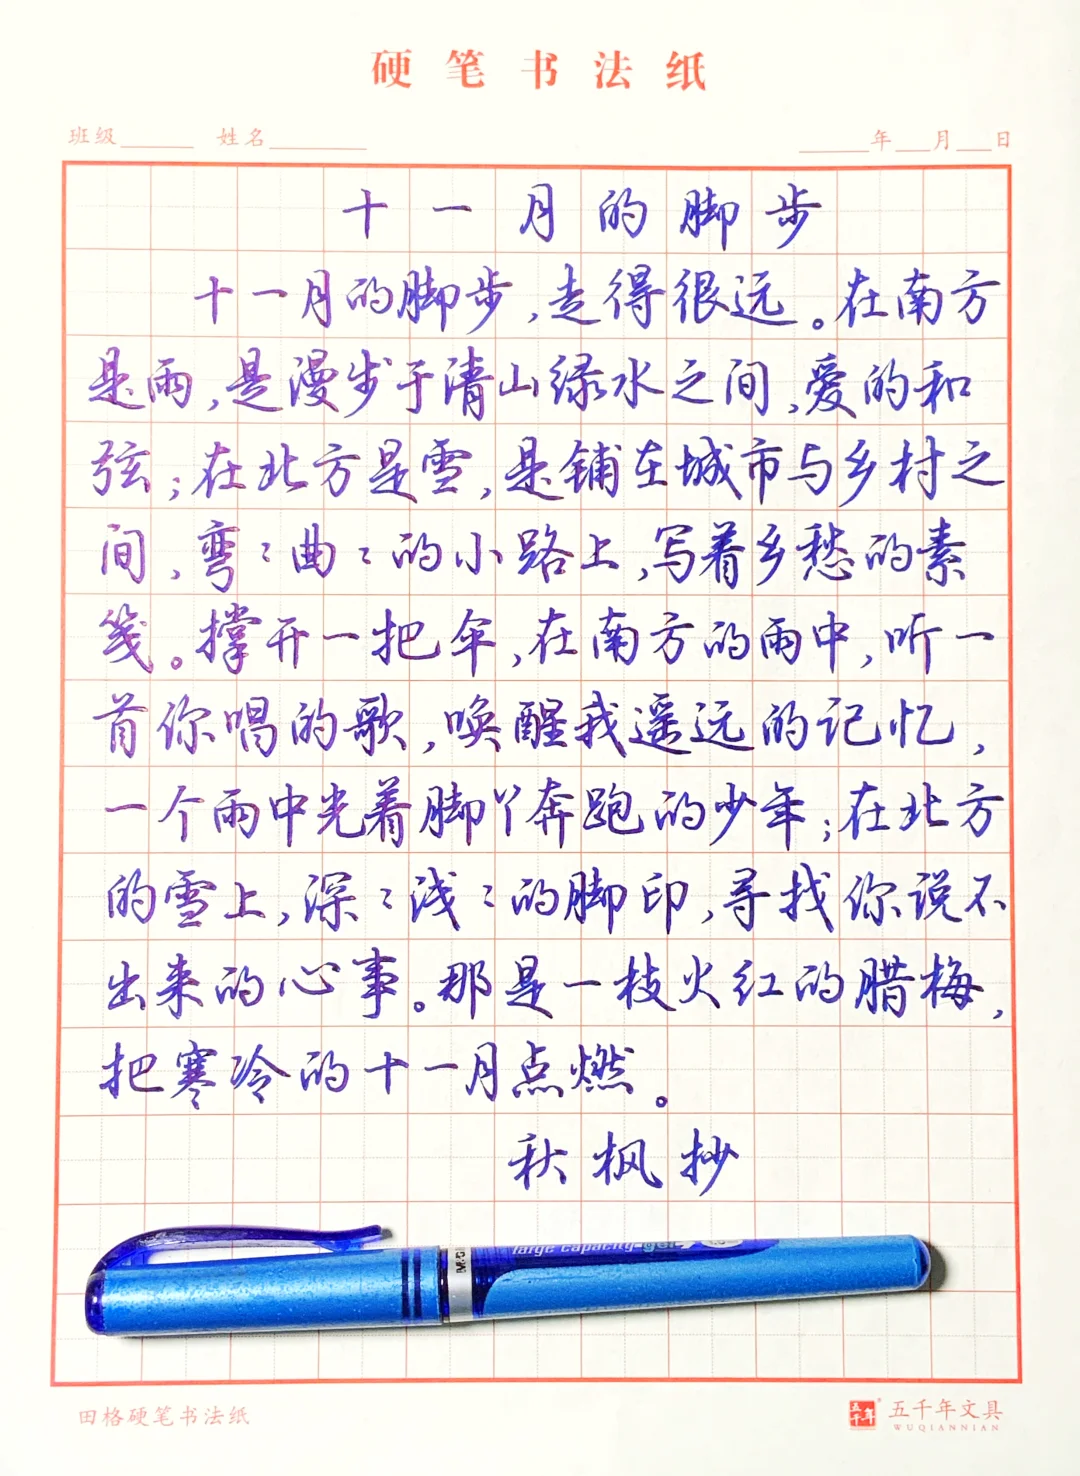 硬笔书法纸
班级 姓名 年 月 日
十一月的脚步
十一月的脚步,走得很远。在南方
是雨,是漫步于清山绿水之间,爱的和
弦;在北方是雪,是铺在城市与乡村之
间,弯：曲：的小路上,写着乡愁的素
笺。撑开一把伞,在南方的雨中,听一
首你唱的歌,唤醒我遥远的记忆,
一个雨中光着脚丫奔跑的少年;在北方
的雪上,深：浅：的脚印,寻找你说不
出来的心事。那是一枝火红的腊梅,
把寒冷的十一月点燃。
秋枫抄
large capacity gel
田格硬笔书法纸
五千年 五千年文具
WUQIANNIAN